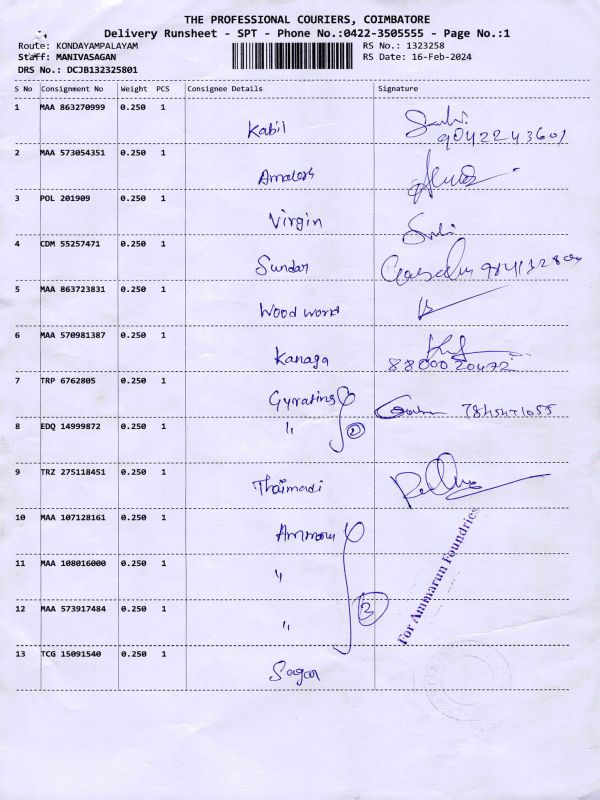 THE PROFESSIONAL COURIERS, COIMBATORE
Delivery Runsheet - SPT - Phone No.:0422-3505555 - Page No.:1
Route: KONDAYAMPALAYAM RS No.: 1323258
Staff: MANIVASAGAN RS Date: 16-Feb-2024
DRS No.: DCJB132325801
S No Consignment No Weight PCS Consignee Details Signature
1 MAA 863270999 0.250 1
Kabil
9042243601
2 MAA 573054351 0.250 1
Amalesh
3 POL 201909 0.250 1
Virgin
4 CDM 55257471 0.250 1
Sundar
5 MAA 863723831 0.250 1
Wood world
6 MAA 570981387 0.250 1
Kanaga 8800020472
7 TRP 6762805 0.250 1
Gyrating
8 EDQ 14999872 0.250 1
" 2
9 TRZ 275118451 0.250 1
Thaimadi
10 MAA 107128161 0.250 1
Ammarun
11 MAA 108016000 0.250 1
"
12 MAA 573917484 0.250 1
" 3
For Ammarun Foundries
13 TCG 15091540 0.250 1
Sagar